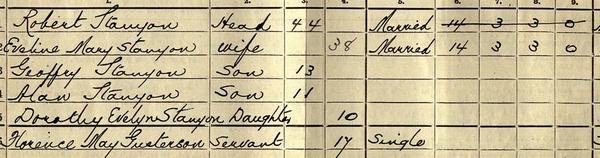 1. 2. 3. 4. 5. 6. 7. 8. 9.
Robert Stanyon Head 44 Married 14 3 3 0
Eveline Mary Stanyon Wife 38 Married 14 3 3 0
3 Geoffry Stanyon Son 13
4 Alan Stanyon Son 11
5 Dorothy Evelyn Stanyon Daughter 10
Florence May Gusterson Servant 17 Single